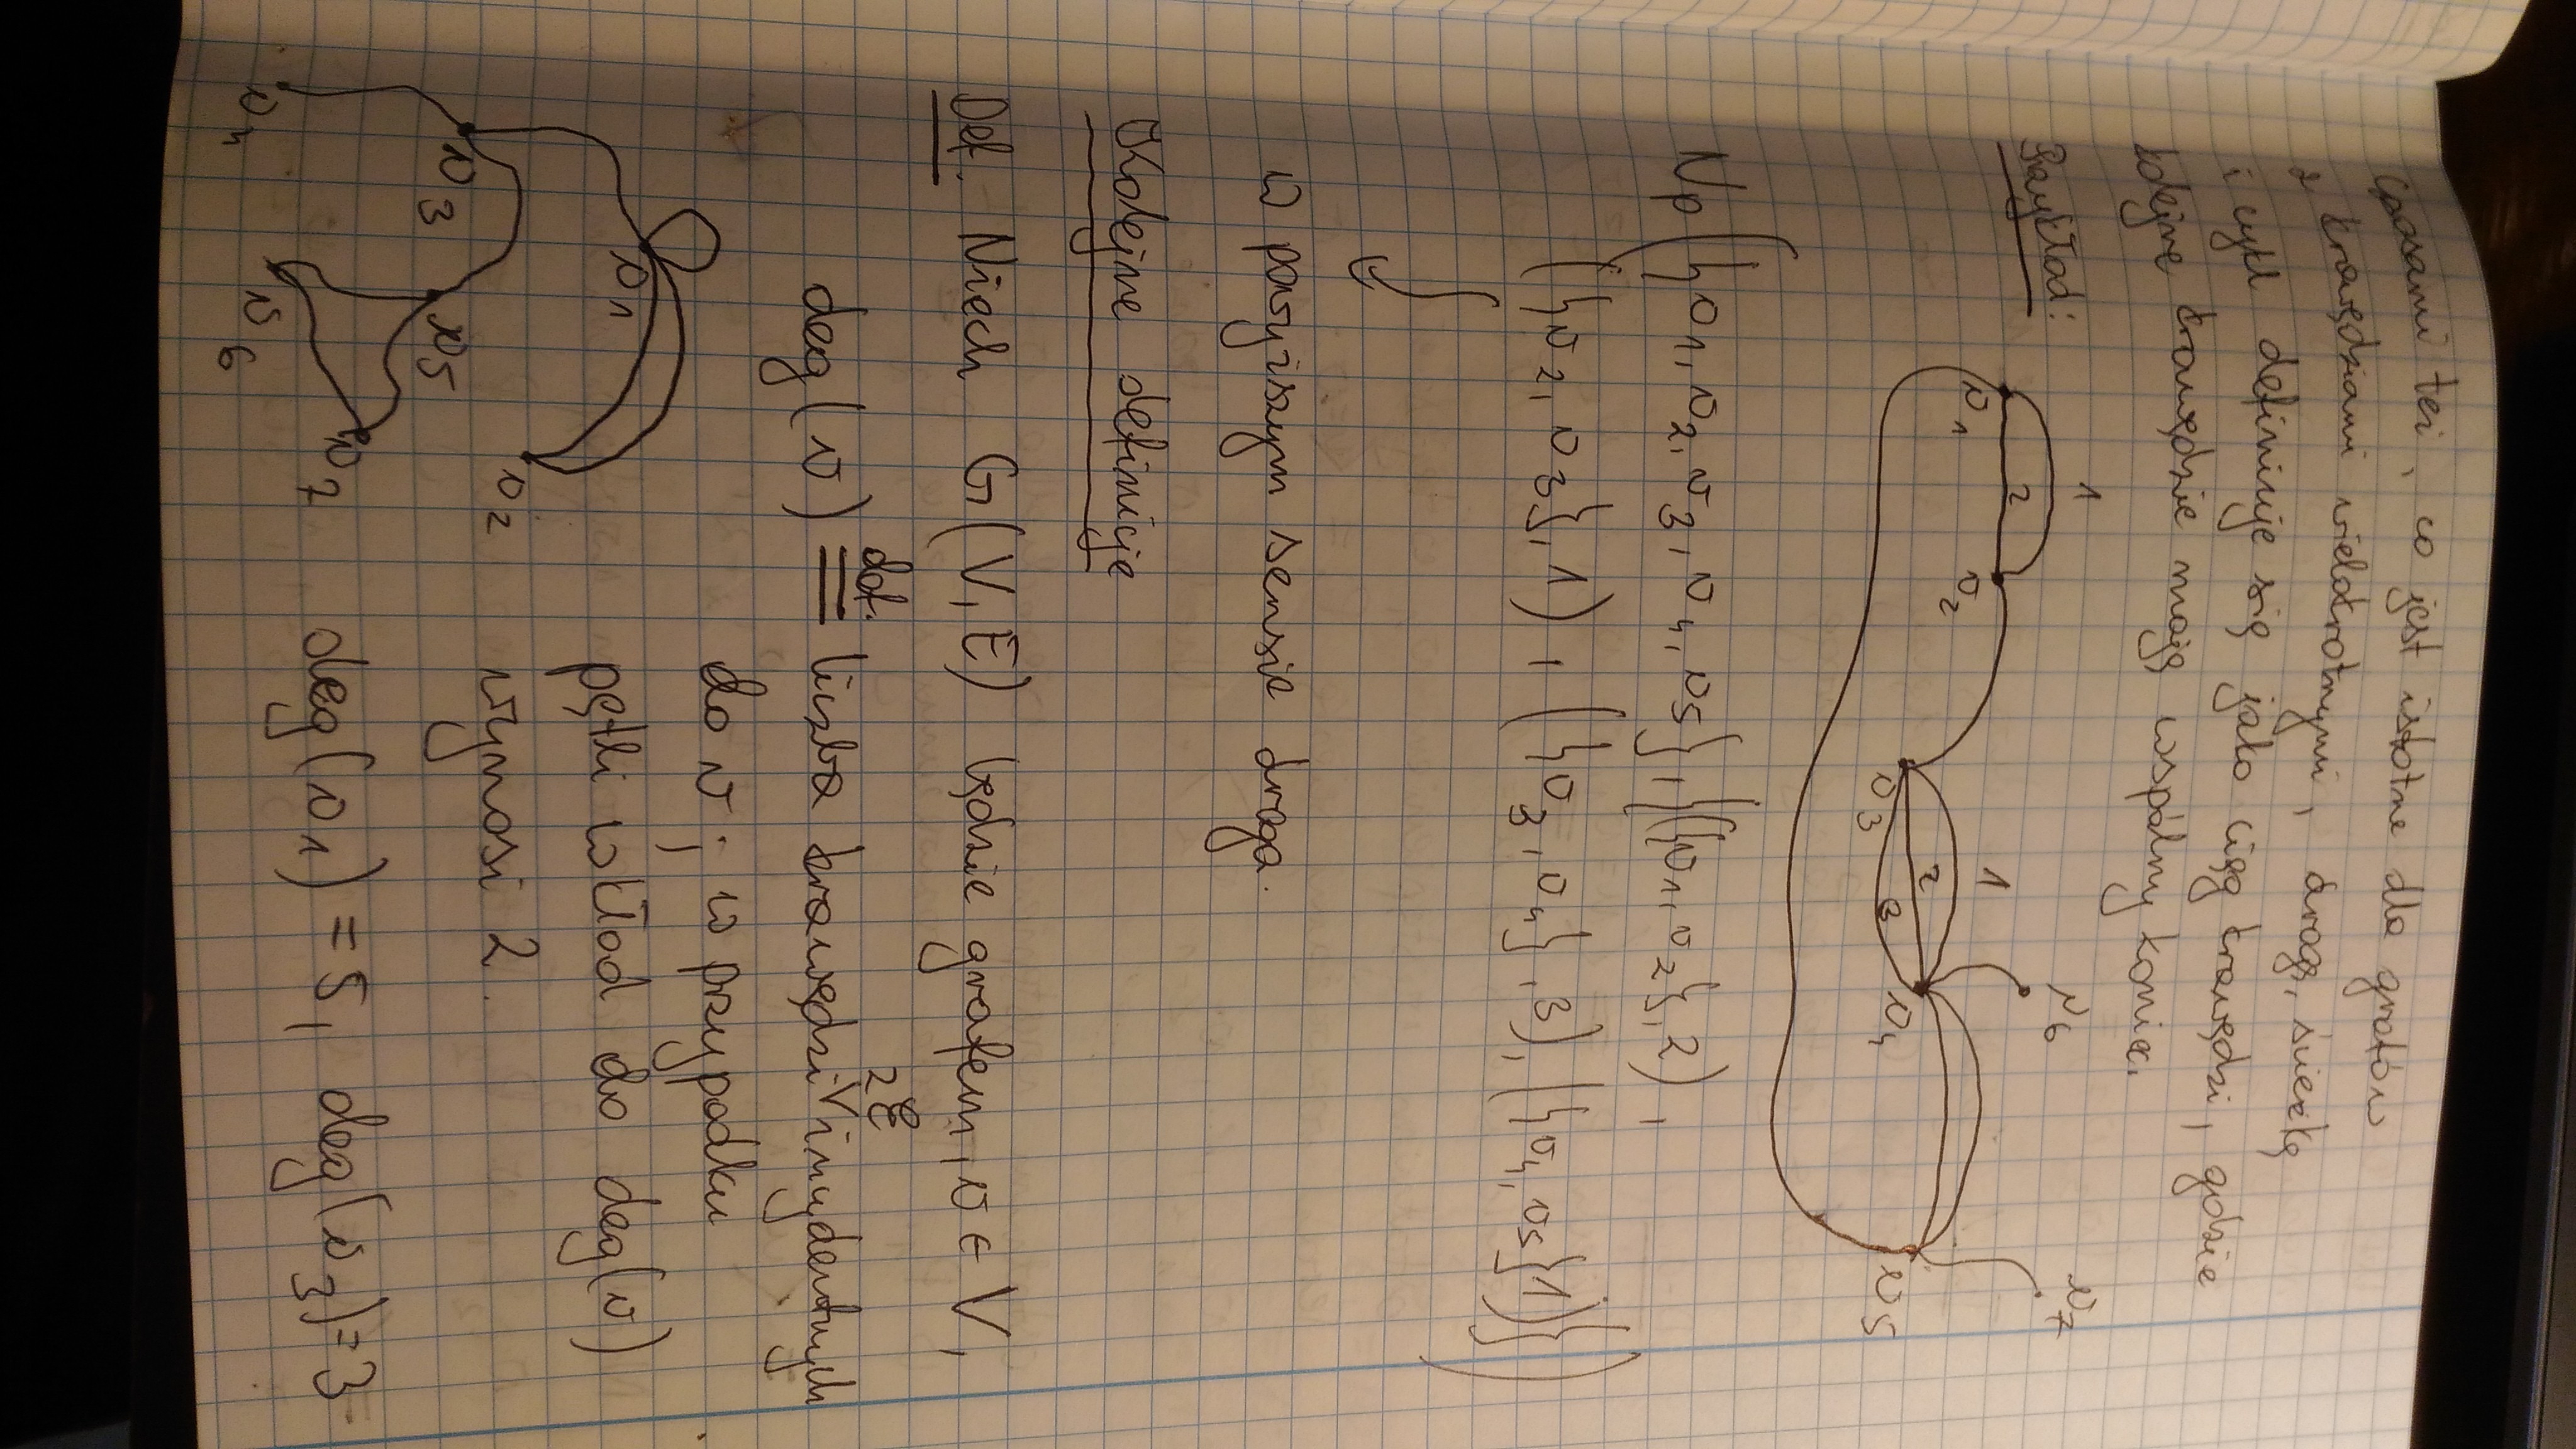 Czasami też, co jest istotne dla grafów
z krawędziami wielokrotnymi, drogę, ścieżkę
i cykl definiuje się jako ciąg krawędzi, gdzie
kolejne krawędzie mają wspólny koniec.
Przykład:
1
2
v₁ v₂
v₆ v₇
1
2
3
v₃ v₄ v₅
Np ({v₁, v₂, v₃, v₄, v₅}, {({v₁, v₂}, 2),
({v₂, v₃}, 1), ({v₃, v₄}, 3), ({v₄, v₅}1)})
w powyższym sensie droga.
Kolejne definicje
Def. Niech G(V, E) będzie grafem, v ∈ V,
z E
deg(v) def. = liczba krawędzi ∨ incydentnych
do v ; w przypadku
pętli wkład do deg(v)
wynosi 2.
v₁
v₂
v₃ v₅
v₇
v₄ v₆
deg(v₁) = 5, deg(v₃) = 3